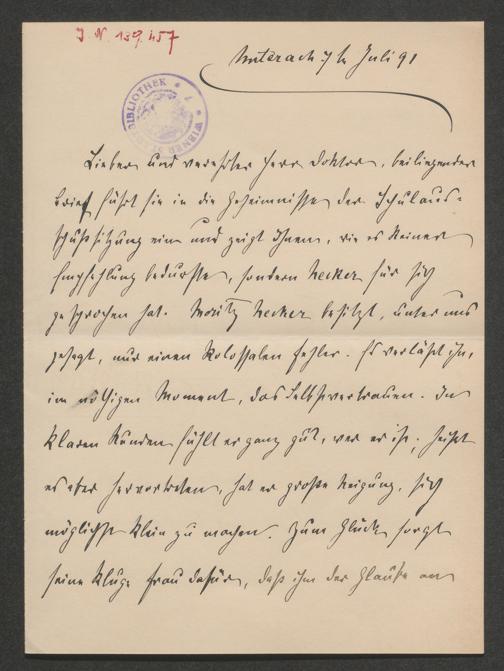 J. N. 139.457
Unterach 7/ Juli 91
WIENER STADTBIBLIOTHEK * 7 *
Lieber und verehrter Herr Doktor, beiliegender
Brief führt sie in die Geheimnisse der Schulaus-
schußsitzung ein und zeigt Ihnen, wie es keiner
Empfehlung bedurfte, sondern Necker für sich
gesprochen hat. Moritz Necker besitzt, unter uns
gesagt, nur einen kolossalen Fehler. Es verläßt ihn,
im nöthigen Moment, das Selbstvertrauen. In
klaren Stunden fühlt er ganz gut, wer er ist; heißt
es aber hervortreten, hat er große Neigung, sich
möglichst klein zu machen. Zum Glück sorgt
seine kluge Frau dafür, daß ihm der Glaube an